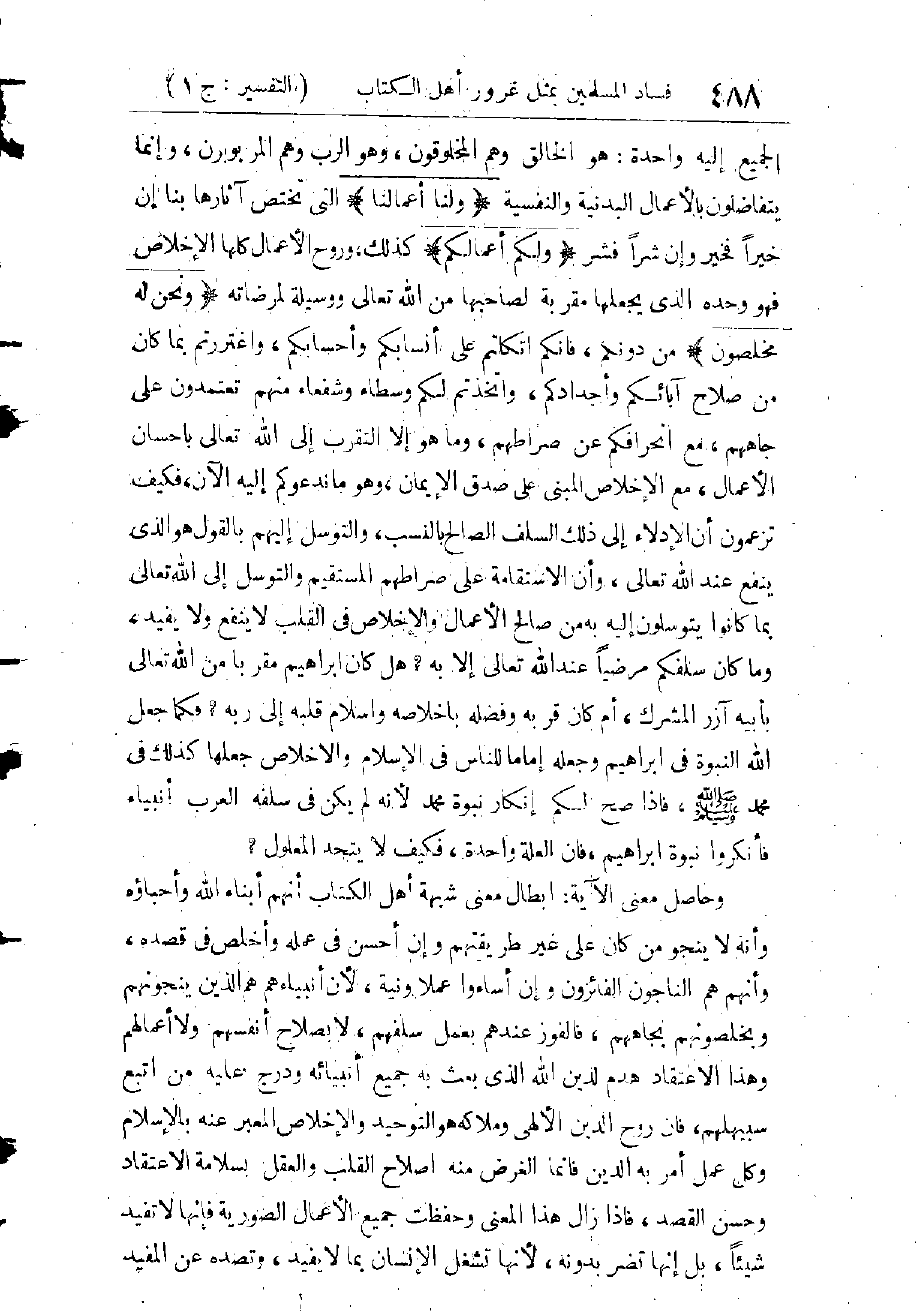 ٤٨٨ فساد المسلمين بمثل غرور أهل الكتاب (التفسير : ج ١)
الجميع إليه واحدة : هو الخالق وهم المخلوقون ، وهو الرب وهم المربوبون ، وإنما
يتفاضلون بالأعمال البدنية والنفسية ﴿ ولنا أعمالنا ﴾ التى تختص آثارها بنا إن
خيراً فخير وإن شراً فشر ﴿ ولكم أعمالكم﴾ كذلك، وروح الأعمال كلها الإخلاص
فهو وحده الذى يجعلها مقربة لصاحبها من الله تعالى ووسيلة لمرضاته ﴿ ونحن له
مخلصون ﴾ من دونكم ، فانكم اتكلتم على أنسابكم وأحسابكم ، واغتررتم بما كان
من صلاح آبائكم وأجدادكم ، واتخذتم لكم وسطاء وشفعاء منهم تعتمدون على
جاههم ، مع انحرافكم عن صراطهم ، وما هو إلا التقرب إلى الله تعالى باحسان
الأعمال ، مع الإخلاص المبنى على صدق الإيمان ، وهو ماندعوكم إليه الآن، فكيف
تزعمون أن الإدلاء إلى ذلك السلف الصالح بالنسب، والتوسل إليهم بالقول هو الذى
ينفع عند الله تعالى ، وأن الاستقامة على صراطهم المستقيم والتوسل إلى الله تعالى
بما كانوا يتوسلون إليه به من صالح الأعمال والإخلاص فى القلب لا ينفع ولا يفيد ،
وما كان سلفكم مرضياً عند الله تعالى إلا به ؟ هل كان ابراهيم مقربا من الله تعالى
بأبيه آزر المشرك ، أم كان قربه وفضله باخلاصه واسلام قلبه إلى ربه ؟ فكما جعل
الله النبوة فى ابراهيم وجعله إماما للناس فى الإسلام والاخلاص جعلها كذلك فى
محمد ﷺ ، فاذا صح لكم إنكار نبوة محمد لأنه لم يكن فى سلفه العرب أنبياء
فأنكروا نبوة ابراهيم ، فان العلة واحدة ، فكيف لا يتحد المعلول ؟
وحاصل معنى الآية: ابطال معنى شبهة أهل الكتاب أنهم أبناء الله وأحباؤه
وأنه لا ينجو من كان على غير طريقتهم وإن أحسن فى عمله وأخلص فى قصده ،
وأنهم هم الناجون الفائزون وإن أساءوا عملا ونية ، لأن أنبياءهم هم الذين ينجونهم
ويخلصونهم بجاههم ، فالفوز عندهم بعمل سلفهم ، لا بصلاح أنفسهم ولا أعمالهم
وهذا الاعتقاد هدم لدين الله الذى بعث به جميع أنبيائه ودرج عليه من اتبع
سبيهلهم، فان روح الدين الألهى وملاكه هو التوحيد والإخلاص المعبر عنه بالإسلام
وكل عمل أمر به الدين فانما الغرض منه اصلاح القلب والعقل بسلامة الاعتقاد
وحسن القصد ، فاذا زال هذا المعنى وحفظت جميع الأعمال الصورية فإنها لا تفيد
شيئاً ، بل إنها تضر بدونه ، لأنها تشغل الإنسان بما لا يفيد ، وتصده عن المفيد